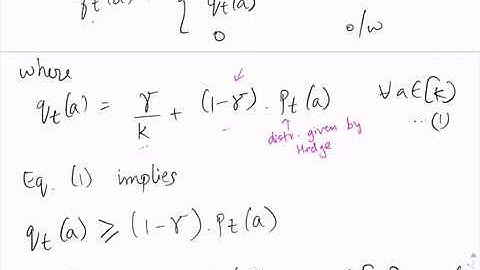 qₜ(a)
0 o/w
where
qₜ(a) = γ/k + (1-γ) . Pₜ(a) ∀a∈[k]
... (1)
distr. given by
Hedge
Eq. (1) implies
qₜ(a) ⩾ (1-γ) . Pₜ(a)